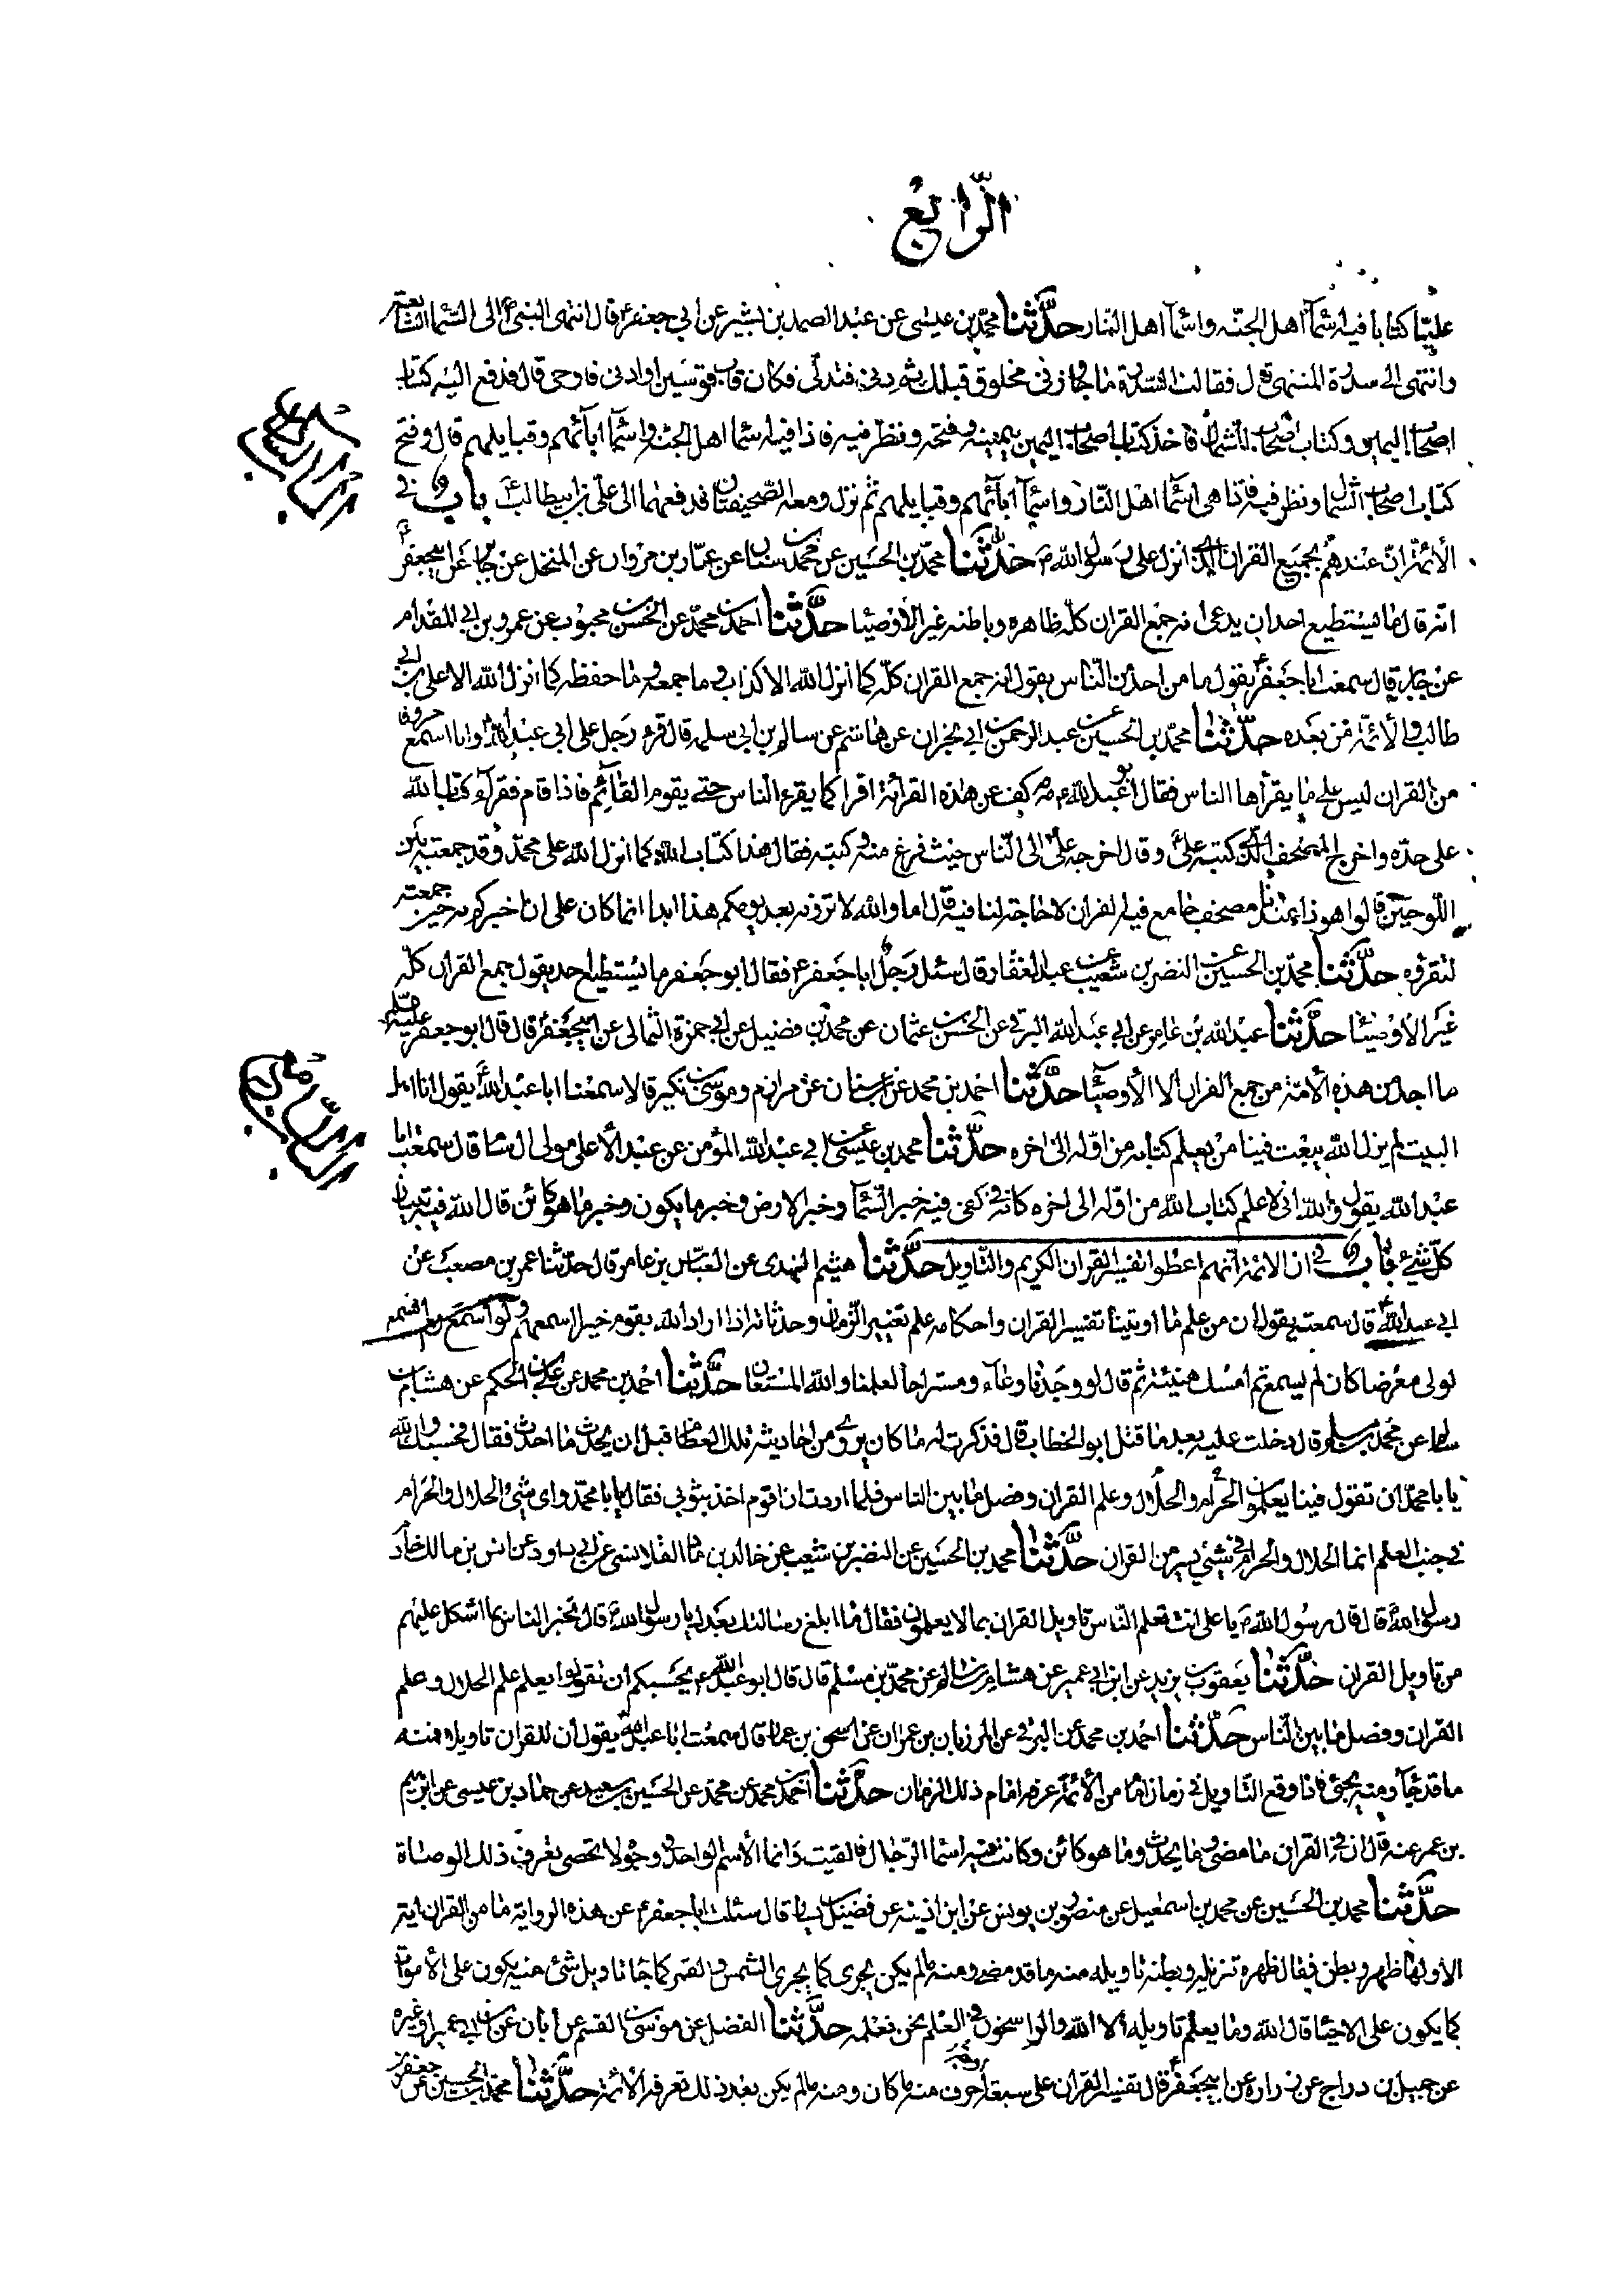 الرابع
عليّا كتابا فيه اسمآ اهل الجنّه واسمآ اهل النار حدّثنا محمّد بن عيسى عن عبد الصمد بن بشير عن ابي جعفر ع قال انتهى النبيّ الى السّماء السّابعة
وانتهى الى سدرة المنتهى قال فقالت السّدرة ما جازني مخلوق قبلك ثم دنى فتدلّى فكان قاب قوسين او ادنى فاوحى قال فدفع اليه كتاب
اصحاب اليمين وكتاب اصحاب الشمال فاخذ كتاب اصحاب اليمين بيمينه وفتحه ونظر فيه فاذا فيه اسما اهل الجنة واسمآ ابآئهم وقبايلهم قال وفتح
كتاب اصحاب الشمال ونظر فيه فاذا هى اسمآ اهل النّار واسمآ ابآئهم وقبايلهم ثم نزل ومعه الصّحيفتان فدفعهما الى علي بن ابيطالب ع باب في
الأئمّة انّ عندهم بجميع القران الذي انزل على رسول الله ص حدّثنا محمّد بن الحسين عن محمد بن سنان عن عمّار بن مروان عن المنخل عن جابر عن ابيجعفر ع
انّه قال ما يستطيع احد ان يدعى انه جمع القران كلّه ظاهره وباطنه غير الأوصيا حدّثنا احمد بن محمّد عن الحسن بن محبوب عن عمرو بن ابي المقدام
عن جابر قال سمعت ابا جعفر ع يقول ما من احد من النّاس يقول انه جمع القران كلّه كما انزل الله الا كذاب وما جمعه وما حفظه كما انزل الله الا على بن ابي
طالب والأئمّة من بعده حدّثنا محمّد بن الحسين عن عبد الرحمن بن ابي نجران عن هاشم عن سالم بن ابي سلمه قال قرء رجل على ابي عبد الله وانا اسمع حروفا
من القران ليس على ما يقرأها الناس فقال ابو عبد الله ع مه مه كف عن هذه القرائة اقرا كما يقرء الناس حتى يقوم القآئم فاذا قام فقرآء كتاب الله
على حدّه واخرج المصحف الذي كتبه عليّ وقال اخرجه عليّ الى النّاس حيث فرغ منه وكتبه فقال هذا كتاب الله كما انزل الله على محمّد وقد جمعته بين
اللّوحين قالوا هو ذا عندنا مصحف جامع فيه القران لا حاجة لنا فيه قال اما والله لا ترونه بعد يومكم هذا ابدا انما كان على ان اخبركم به حين جمعته
لتقرؤه حدّثنا محمّد بن الحسين عن النضر بن شعيب عن عبد الغفّار قال سئل رجل ابا جعفر ع فقال ابو جعفر ما يستطيع احد يقول جمع القران كلّه
غير الأوصيّا حدّثنا عبد الله بن عامر عن ابي عبد الله البرقي عن الحسن بن عثمان عن محمّد بن فضيل عن ابي حمزة الثمالى عن ابيجعفر ع قال قال ابو جعفر
ما اجد من هذه الأمّة من جمع القران الا الأوصيآ حدّثنا احمد بن محمد عن ابن سنان عن مرازم وموسى بن بكير قالا سمعنا ابا عبد الله يقول انا اهل
البيت لم يزل الله يبعث فينا من يعلم كتابه من اوّله الى اخره حدّثنا محمد بن عيسى عن ابي عبد الله المؤمن عن عبد الأعلى مولى ال سام قال سمعت ابا
عبد الله يقول والله انى لاعلم كتاب الله من اوّله الى اخره كانّه في كفى فيه خبر السّمآ وخبر الارض وخبر ما يكون وخبر ما هو كائن قال الله فيه تبيان
كلّ شيئ باب في ان الائمة انّهم اعطوا تفسير القران الكريم والتّاويل حدّثنا هيثم النهدى عن العبّاس بن عامر قال حدّثنا عمر بن مصعب عن
ابي عبد الله ع قال سمعته يقول ان من علم ما اوتينا تفسير القران واحكامه علم تغيير الزّمان وحدثانه اذا اراد الله بقوم خيرا اسمعهم ولو اسمع من لم يسمع
لولى معرضا كان لم يسمع ثم امسك هنيئة ثم قال لو وجدنا وعآء ومستراحا لعلمنا والله المستعان حدّثنا احمد بن محمد عن على بن الحكم عن هشام بن
سالم عن محمّد بن مسلم قال دخلت عليه بعد ما قتل ابو الخطاب قال فذكرت له ما كان يروى من احاديثه تلك العظام قبل ان يحدث ما احدث فقال فحسبك والله
يا با محمّد ان تقول فينا يعلمون الحرام والحلال وعلم القران وفصل ما بين الناس فلما اردت ان اقوم اخذ بثوبي فقال يا با محمّد واى شيئ الحلال والحرام
في جنب العلم انما الحلال والحرام في شيئ يسير من القران حدّثنا محمد بن الحسين عن النضر بن شعيب عن خالد بن ماد القلانسى عن ابي داود عن انس بن مالك خادم
رسول الله قال قال رسول الله ص يا على انت تعلم النّاس تاويل القران بما لا يعلمون فقال ما ابلغ رسالتك بعدك يا رسول الله قال تخبر الناس بما اشكل عليهم
من تاويل القران حدّثنا يعقوب بن يزيد عن ابن ابي عمير عن هشام بن سالم عن محمّد بن مسلم قال قال ابو عبد الله ع بحسبكم ان تقولوا يعلم علم الحلال وعلم
القران وفصل ما بين النّاس حدّثنا احمد بن محمد عن البرقي عن المرزبان بن عمران عن اسحق بن عمار قال سمعت ابا عبد الله يقول ان للقران تاويلا فمنه
ما قد جآ ومنه يجئ فاذا وقع التّاويل في زمان امام من الأئمّة عرفه امام ذلك الزمان حدّثنا احمد بن محمد عن محمّد عن الحسين بن سعيد عن حماد بن عيسى عن ابرهيم
بن عمر عنه قال ان في القران ما مضى وما يحدث وما هو كائن وكانت فيه اسما الرّجال فالقيت وانما الأسم الواحد وجوه لا تحصى يعرف ذلك الوصاة
حدّثنا محمد بن الحسين عن محمد بن اسمعيل عن منصور بن يونس عن ابن اذينه عن فضيل بن يسار قال سئلت ابا جعفر ع عن هذه الرواية ما من القران اية
الا ولها ظهر وبطن فقال ظهره تنزيله وبطنه تاويله منه ما قد مضى ومنه ما لم يكن يجرى كما يجرى الشمس والقمر كما جا تاويل شئ منه يكون على الأموات
كما يكون على الاحيا قال الله وما يعلم تاويله الا الله والراسخون في العلم نحن نعلمه حدّثنا الفضل عن موسى بن القسم عن أبان عن ابن ابي عمير او غيره
عن جميل بن دراج عن زراره عن ابيجعفر ع قال تفسير القران على سبعة احرف منه ما كان ومنه ما لم يكن بعد ذلك تعرفه الأئمّة حدّثنا محمّد بن الحسين عن جعفر
الباب السابع
الباب الثامن